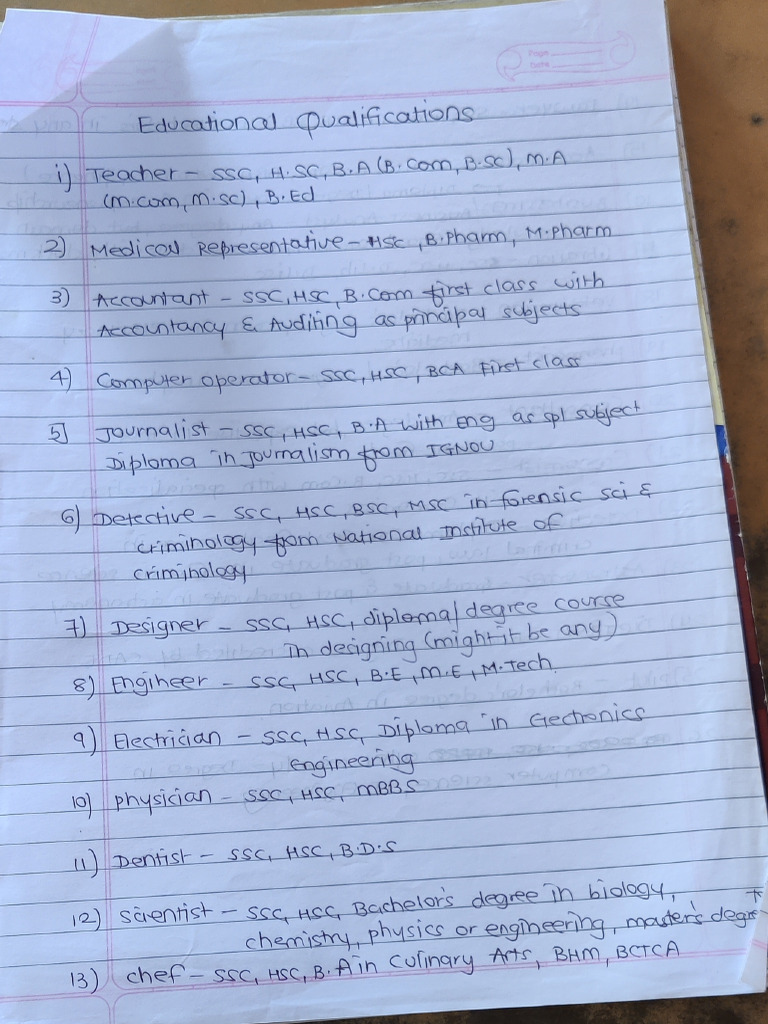 Educational Qualifications
1) Teacher – SSC, H.SC, B.A (B.Com, B.SC), M.A
(M.com, M.sc), B.Ed
2) Medical Representative – HSC, B.Pharm, M.Pharm
3) Accountant – SSC, HSC, B.Com first class with
Accountancy & Auditing as principal subjects
4) Computer operator – SSC, HSC, BCA First class
5) Journalist – SSC, HSC, B.A with Eng as spl subject
Diploma in Journalism from IGNOU
6) Detective – SSC, HSC, BSC, MSC in forensic sci &
criminology from National Institute of
criminology
7) Designer – SSC, HSC, diploma/degree course
in designing (might it be any)
8) Engineer – SSC, HSC, B.E, M.E, M.Tech
9) Electrician – SSC, HSC, Diploma in Electronics
engineering
10) Physician – SSC, HSC, MBBS
11) Dentist – SSC, HSC, B.D.S
12) Scientist – SSC, HSC, Bachelor's degree in biology,
chemistry, physics or engineering, master's degree
13) chef – SSC, HSC, B.A in Culinary Arts, BHM, BCTCA